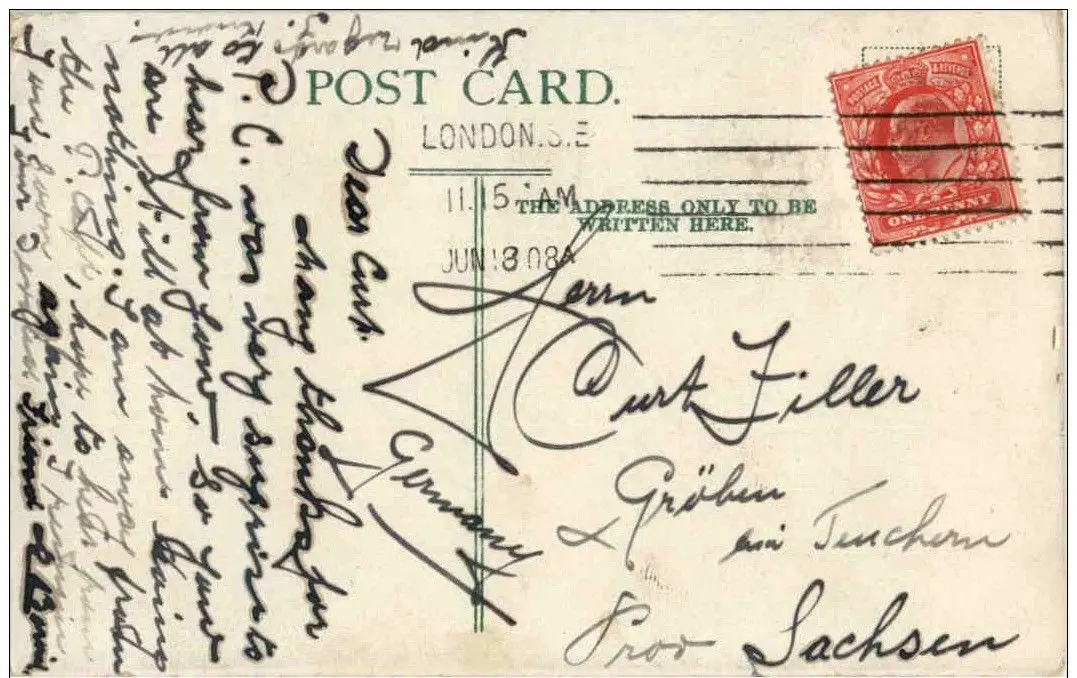 POST CARD.
LONDON.S.E
11.15 AM
JUN 18 08A
THE ADDRESS ONLY TO BE
WRITTEN HERE.
POSTAGE & REVENUE
ONE PENNY
Herrn
Curt Filler
Gröben
via Teuchern
Prov Sachsen
Germany
Dear Curt.
Many thanks for
P. C. was very surpris to
hear from you, so you
are still at home doing
nothing. I am away from
the hope to hear from
you soon again, I remain
Your Friend
Kind regards to all